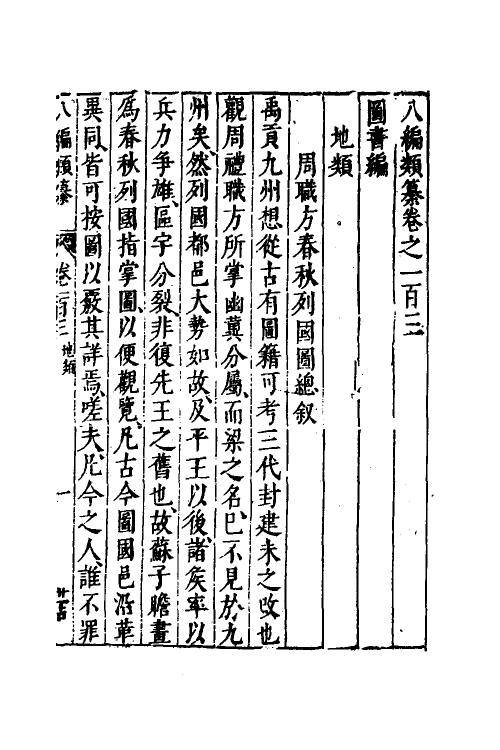 八編類纂卷之一百三
圖書編
地類
周職方春秋列國圖總叙
禹貢九州想從古有圖籍可考三代封建未之改也
觀周禮職方所掌幽冀分屬而梁之名已不見於九
州矣然列國都邑大勢如故及平王以後諸矦率以
兵力争雄區宇分裂非復先王之舊也故蘇子瞻畫
爲春秋列國指掌圖以便觀覽凡古今圖國邑沿革
異同皆可按圖以覈其詳焉嗟夫凡今之人誰不罪
八編類纂 卷一百三 地類 一